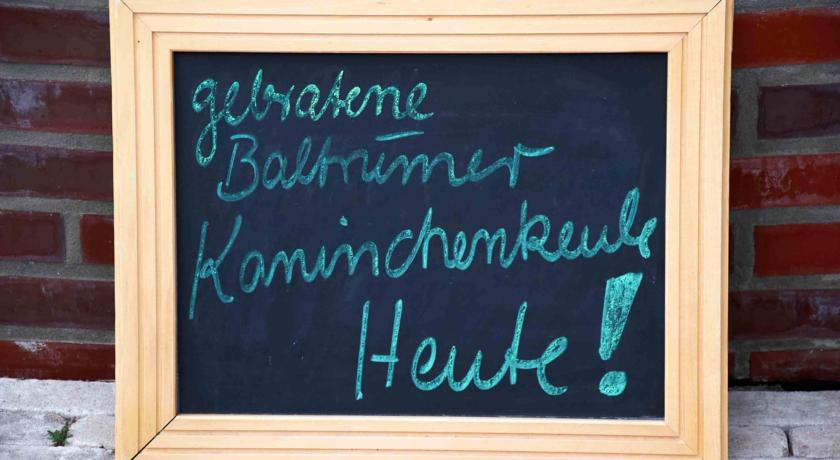 gebratene
Baltrumer
Kaninchenkeule
Heute!